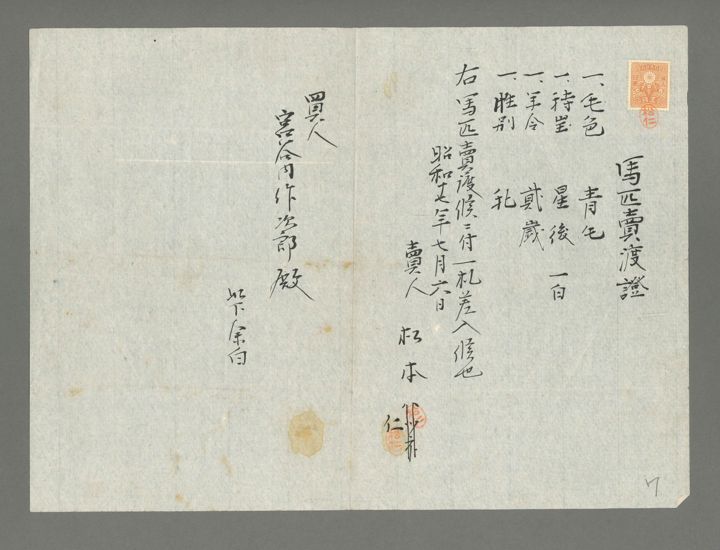 馬匹賣渡證
一、毛色 青毛
一、特豈 星 後一白
一、年令 貳歳
一、性別 牝
右馬匹賣渡候ニ付一札差入候也
昭和十七年七月六日
賣人 松本 仁
買人
宮内作次郎殿
以下余白
7